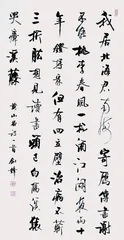 我居北海君南海寄雁傳書謝
不能桃李春風一杯酒江湖夜雨十
年燈持家但有四立壁治病不蘄
三折肱想見讀書頭已白隔溪猿
哭瘴溪藤
黃山谷詩